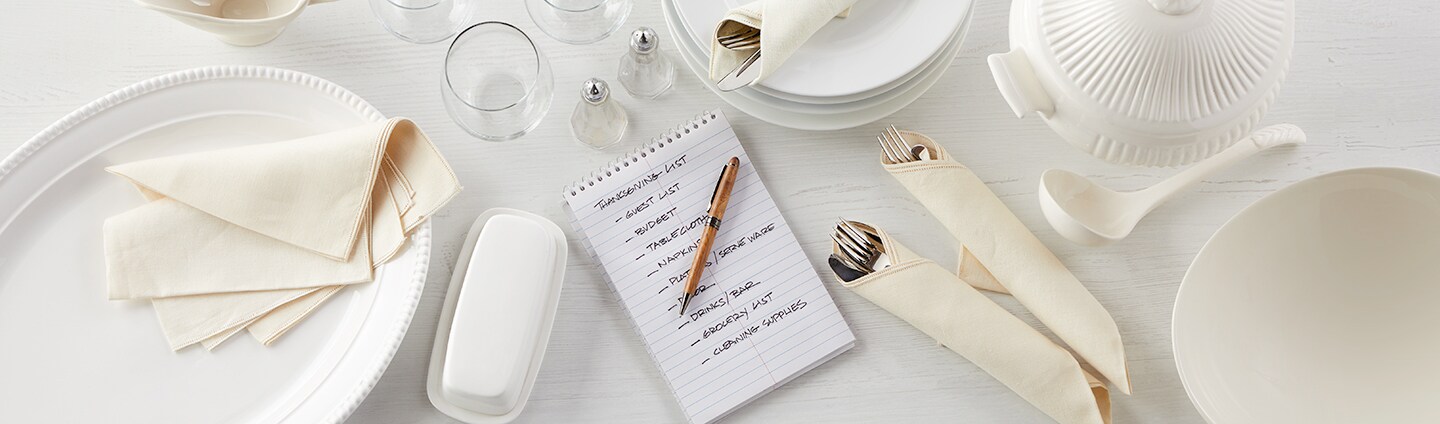 THANKSGIVING LIST
- GUEST LIST
- BUDGET
- TABLECLOTH
- NAPKINS
- PLATES/SERVE WARE
- DECOR
- DRINKS/BAR
- GROCERY LIST
- CLEANING SUPPLIES